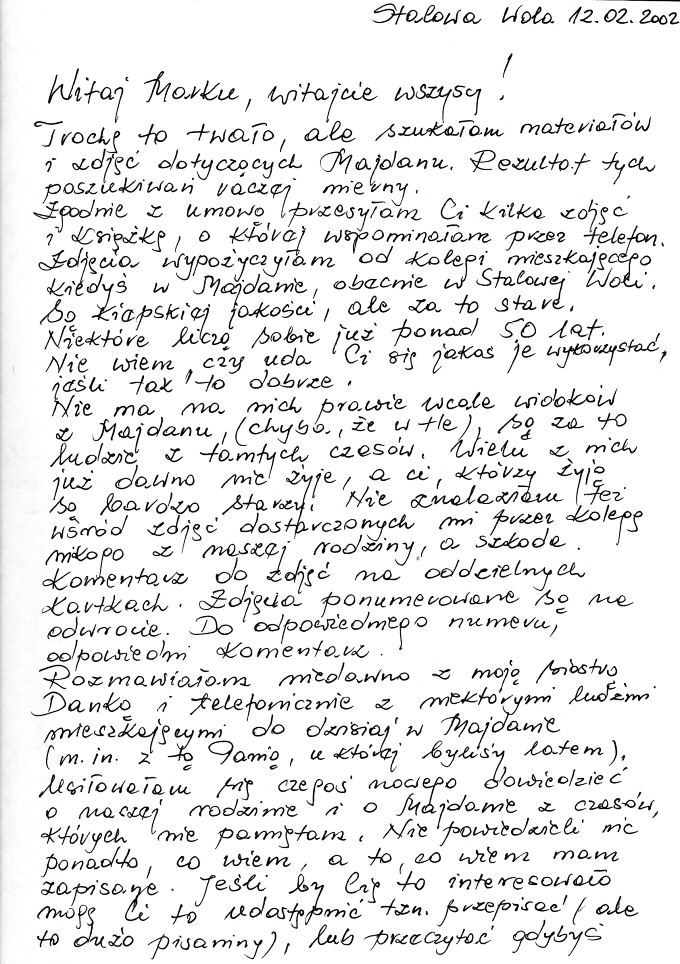 Stalowa Wola 12.02.2002
Witaj Marku, witajcie wszyscy!
Trochę to twało, ale szukałam materiałów
i zdjęć dotyczących Majdanu. Rezultat tych
poszukiwań raczej mierny.
Zgodnie z umową przesyłam Ci kilka zdjęć
i książkę, o której wspominałam przez telefon.
Zdjęcia wypożyczyłam od kolegi mieszkającego
kiedyś w Majdanie, obecnie w Stalowej Woli.
Są kiepskiej jakości, ale za to stare.
Niektóre liczą sobie już ponad 50 lat.
Nie wiem, czy uda Ci się jakoś je wykorzystać,
jeśli tak to dobrze.
Nie ma na nich prawie wcale widoków
z Majdanu, (chyba, że w tle), są za to
ludzie z tamtych czasów. Wielu z nich
już dawno nie żyje, a ci, którzy żyją
są bardzo starzy. Nie znalazłam też
wśród zdjęć dostarczonych mi przez kolegę
nikogo z naszej rodziny, a szkoda.
Komentarz do zdjęć na oddzielnych
kartkach. Zdjęcia ponumerowane są na
odwrocie. Do odpowiedniego numeru,
odpowiedni komentarz.
Rozmawiałam niedawno z moją siostrą
Danką i telefonicznie z niektórymi ludźmi
mieszkającymi do dzisiaj w Majdanie
(m.in. z tą Panią, u której byliśy latem).
Usiłowałam się czegoś nowego dowiedzieć
o naszej rodzinie i o Majdanie z czasów,
których nie pamiętam. Nie powiedzieli nic
ponadto, co wiem, a to, co wiem mam
zapisane. Jeśli by Cię to interesowało
mogę Ci to udostępnić tzn. przepisać (ale
to dużo pisaniny), lub przeczytać gdybyś